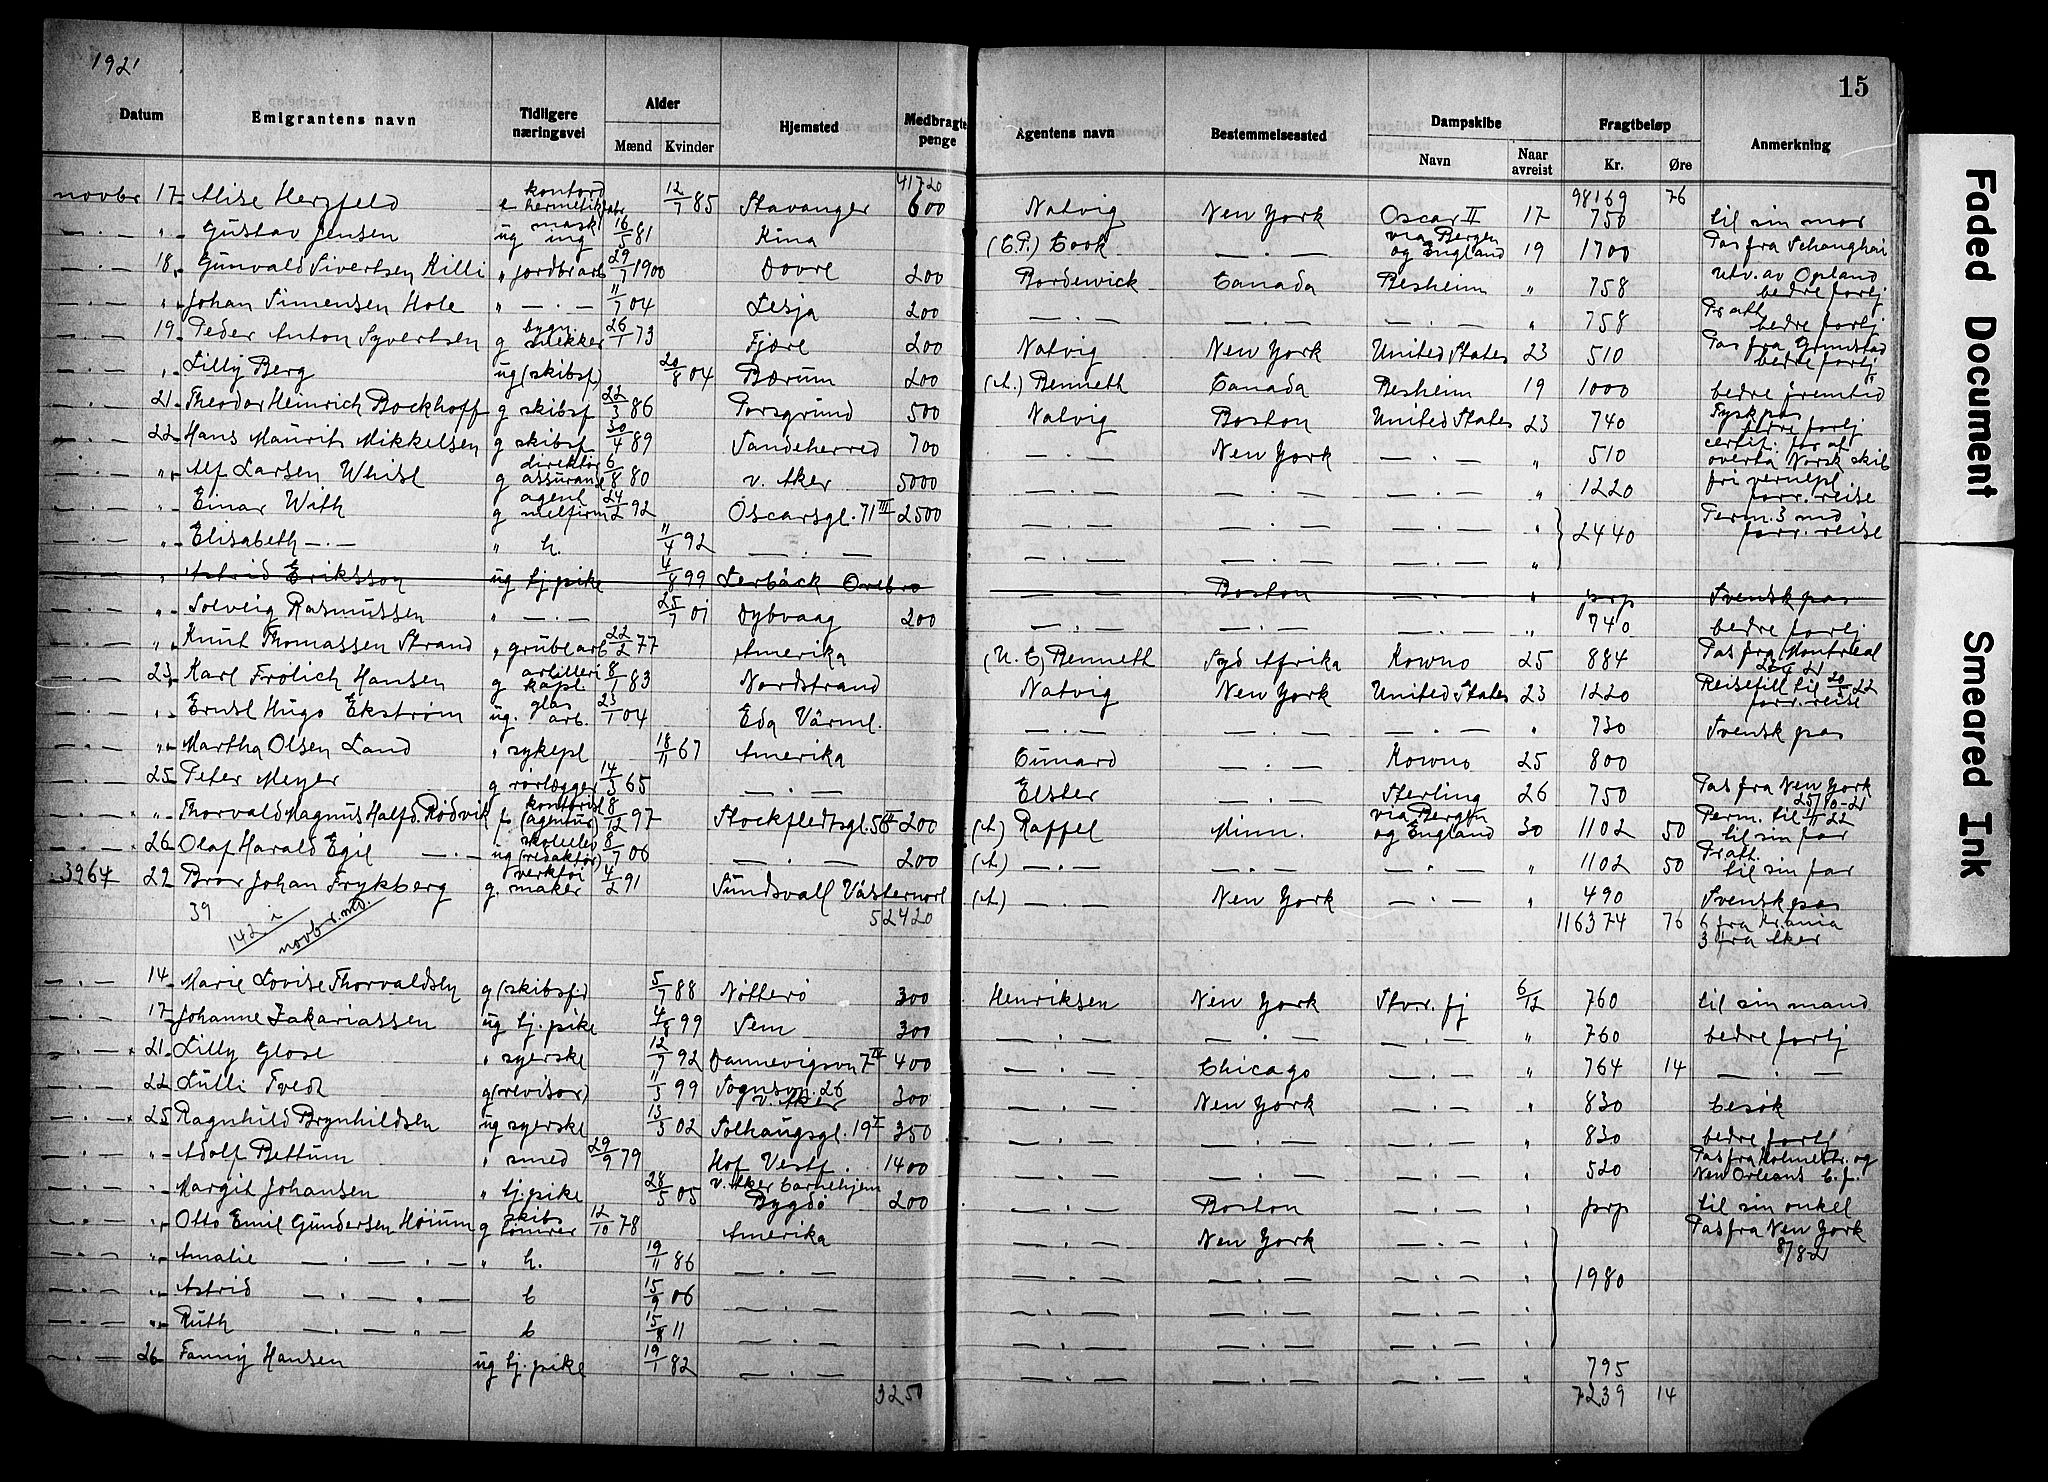 1921
15
Datum Emigrantens navn Tidligere næringsvei Alder Mænd Kvinder Hjemsted Medbragte penge Agentens navn Bestemmelsessted Dampskibe Navn Naar avreist Fragtbeløp Kr. Øre Anmerkning
41720 98169 76
novbr 17 Alise Herzfeld e kontord hermetikfabr 12/7 85 Stavanger 600 Natvig New York Oscar II 17 750 til sin mor
— . — „ Gustav Jensen ug mask ing 16/5 81 Kina (C.P.) Cook — . — via Bergen og England 19 1700 Pas fra Schanghai
— . — 18 Gunvald Sivertsen Killi „ jordbr arb 29/7 1900 Dovre 200 Bordewick Canada Besheim „ 758 utv. av Opland bedre forlj
— . — „ Johan Simensen Hole „ — . — 11/7 04 Lesja 200 — . — — . — — . — „ 758 Pratt bedre forlj
— . — 19 Peder Anton Syvertsen g bygn snekker 26/1 73 Fjære 200 Natvig New York United States 23 510 Pas fra Grimstad bedre forlj
— . — „ Lilly Berg ug (skibsf) 20/8 04 Bærum 200 (A.) Benneth Canada Besheim 19 1000 bedre fremtid
— . — 21 Theodor Heinrich Bockhoff g skibsf 22/3 86 Porsgrund 500 Natvig Boston United States 23 740 Tysk pas bedre forlj
— . — 22 Hans Maurits Mikkelsen g skibsf 30/4 89 Sandeherred 700 — . — New York — . — „ 510 certif. for at overta Norsk skib
— . — „ Alf Larsen Whist g direktør assurance 6/8 80 v. Aker 5000 — . — — . — — . — „ 1220 fri vernepl forr. reise
— . — „ Einar With g agent melfirm 24/2 92 Oscarsgl. 71 III 2500 — . — — . — — . — „ 2440 Perm. 3 md forr. reise
— . — „ Elisabeth — . — „ h. 11/4 92 — . — — . — — . — — . — „
— . — „ Astrid Eriksson ug tj. pike 4/8 99 Lerbäck Orebro — . — Boston — . — „ prp Svensk pas
— . — „ Solveig Rasmussen „ — . — 25/7 01 Dybvaag 200 — . — — . — — . — „ 740 bedre forlj
— . — „ Knut Thomassen Strand „ grubearb 22/2 77 Amerika (U.C) Benneth Syd Afrika Kowno 25 884 Pas fra Montreal 23/6 21
— . — 23 Karl Frölich Hansen g artilleri kapt 8/1 83 Nordstrand Natvig New York United States 23 1220 Reisetill til 20/5 22 forr. reise
— . — „ Ernst Hugo Ekström ug. glas arb. 23/1 04 Eda Värml. — . — — . — — . — „ 730 Svensk pas
— . — „ Martha Olsen Land „ sykepl 18/11 67 Amerika Cunard — . — Kowno 25 800
— . — 25 Peter Meyer g rørlægger 14/3 65 — . — Elster — . — Sterling 26 750 Pas fra New York 25/10-21
— . — „ Thorvald Magnus Halfd. Rödvik f kontorist (agentur) 8/12 97 Stockfledtsgl. 56 II 200 (A) Raffel Minn. via Bergen og England 30 1102 50 Perm. til 1/11 22 til sin far
— . — 26 Olaf Harald Egil — . — ug skoleelev (redaktør) 8/7 06 — . — 200 (A) — . — — . — — . — „ 1102 50 Pratt. til sin far
3967 29 Bror Johan Frykberg g verktøi maker 4/2 91 Sundsvall Västernorl (A) — . — New York — . — „ 490 Svensk pas
39 52420 116374 76 6 fra Kr.ania
142 i novbr. md. 3 fra Aker
— . — 14 Marie Lovise Thorvaldsen g (skibsf) 5/7 88 Nötterö 300 Henriksen New York Stvr. fj 6/12 760 til sin mand
— . — 17 Johanne Zakariassen ug tj. pike 4/8 99 Sem 300 — . — — . — — . — „ 760 bedre forlj
— . — 21 Lilly Glose „ syerske 12/7 92 Dannevigsvn 7 IV 400 — . — Chicago — . — „ 764 14 — . —
— . — 22 Lulli Tvedt g (revisor) 11/3 99 Sognsvn. 26 v. Aker 300 — . — New York — . — „ 830 besök
— . — 25 Ragnhild Brynhildsen ug syerske 13/3 02 Solhaugsgl. 19 I 350 — . — — . — — . — „ 830 bedre forlj
— . — „ Adolf Bettum „ smed 29/9 79 Hof Vestf. 1400 — . — — . — — . — „ 520 Pas fra Holmestr. og New Orleans b. f.
— . — „ Margit Johansen „ tj. pike 28/5 05 v. Aker Barnehjem Bygdö 200 — . — Boston — . — „ prp til sin onkel
— . — „ Otto Emil Gundersen Höium g skibs tömrer 12/10 78 Amerika — . — New York — . — „ Pas fra New York 8/8 21
— . — „ Amalie — . — . — „ h. 19/11 86 — . — — . — — . — — . — „ 1980
— . — „ Astrid — . — „ — b 15/9 06 — . — — . — — . — — . — „
— . — „ Ruth — . — „ — b 15/8 11 — . — — . — — . — — . — „
— . — 26 Fanny Hansen ug tj. pike 19/1 82 — . — — . — — . — — . — „ 795
3250 7239 14
Faded Document
Smeared Ink